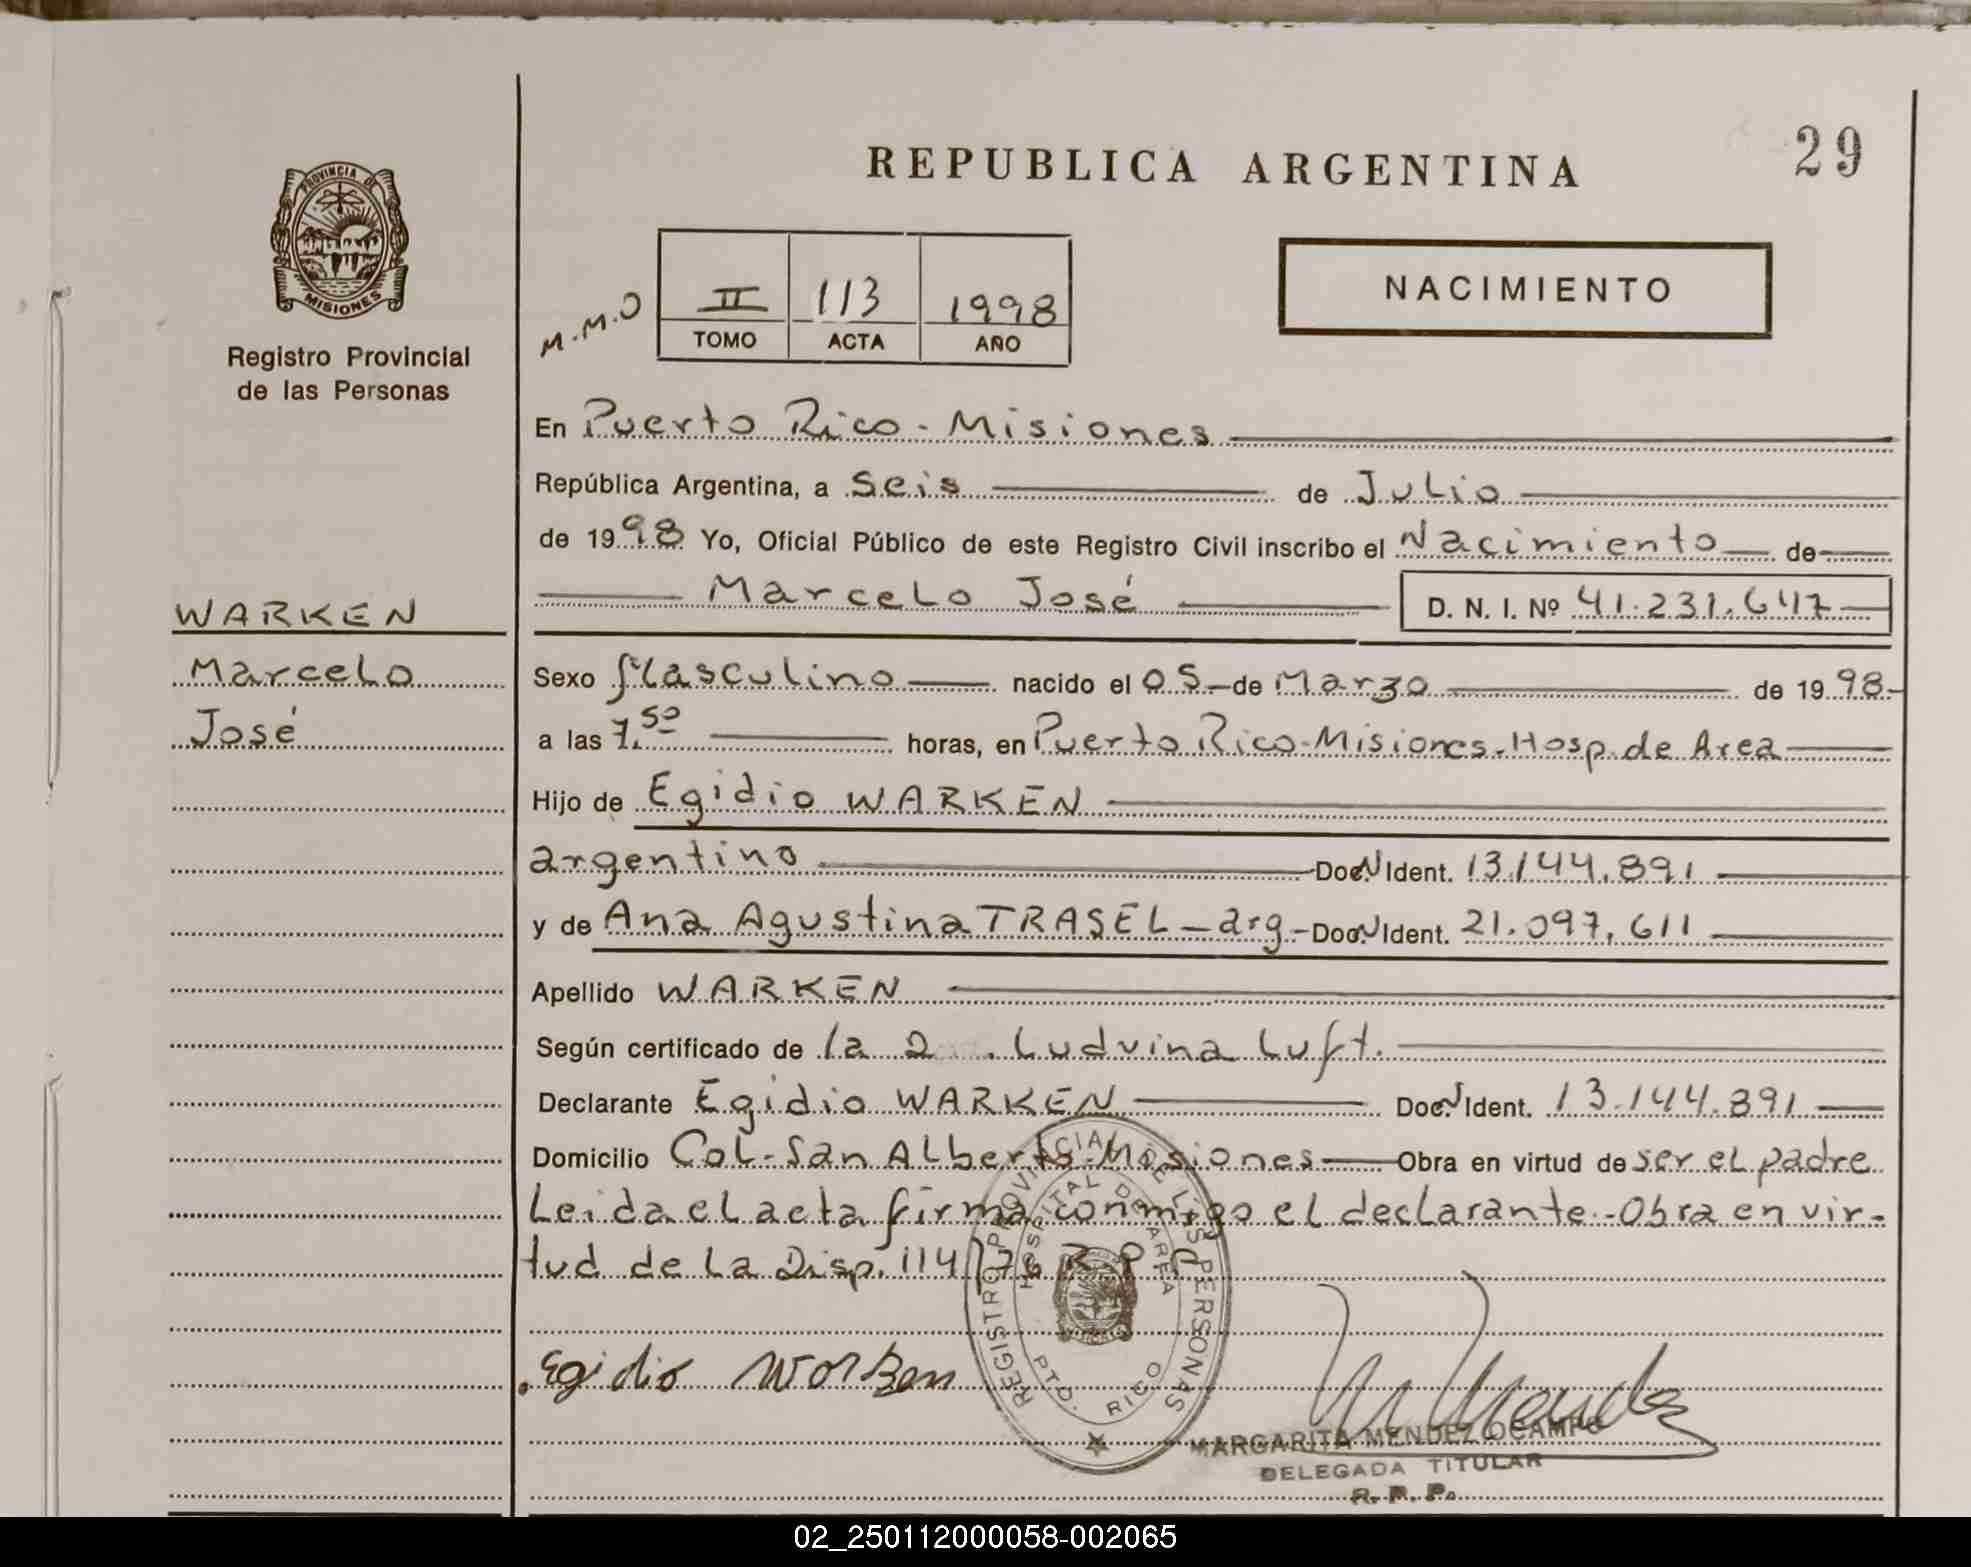 REPUBLICA ARGENTINA
29
PROVINCIA DE
MISIONES
Registro Provincial
de las Personas
M.M.O
II 113 1998
TOMO ACTA AÑO
NACIMIENTO
En Puerto Rico - Misiones
República Argentina, a Seis de Julio
de 1998 Yo, Oficial Público de este Registro Civil inscribo el Nacimiento de
Marcelo José D. N. I. Nº 41.231.647
WARKEN
Marcelo
José
Sexo Masculino nacido el 05 de Marzo de 1998
a las 7.50 horas, en Puerto Rico-Misiones-Hosp. de Area
Hijo de Egidio WARKEN
argentino Doc. N Ident. 13.144.891
y de Ana Agustina TRASEL - arg - Doc. N Ident. 21.097.611
Apellido WARKEN
Según certificado de la Ludvina Luft.
Declarante Egidio WARKEN Doc. N Ident. 13.144.891
Domicilio Col-San Alberto-Misiones Obra en virtud de ser el padre
Leida el acta firma conmigo el declarante.-Obra en vir-
tud de la Disp. 114/76 R P P
Egidio Warken
REGISTRO PROVINCIAL DE LAS PERSONAS
HOSPITAL DE AREA
PTO. RICO
MARGARITA MENDEZ OCAMPO
DELEGADA TITULAR
R. P. P.
02_250112000058-002065